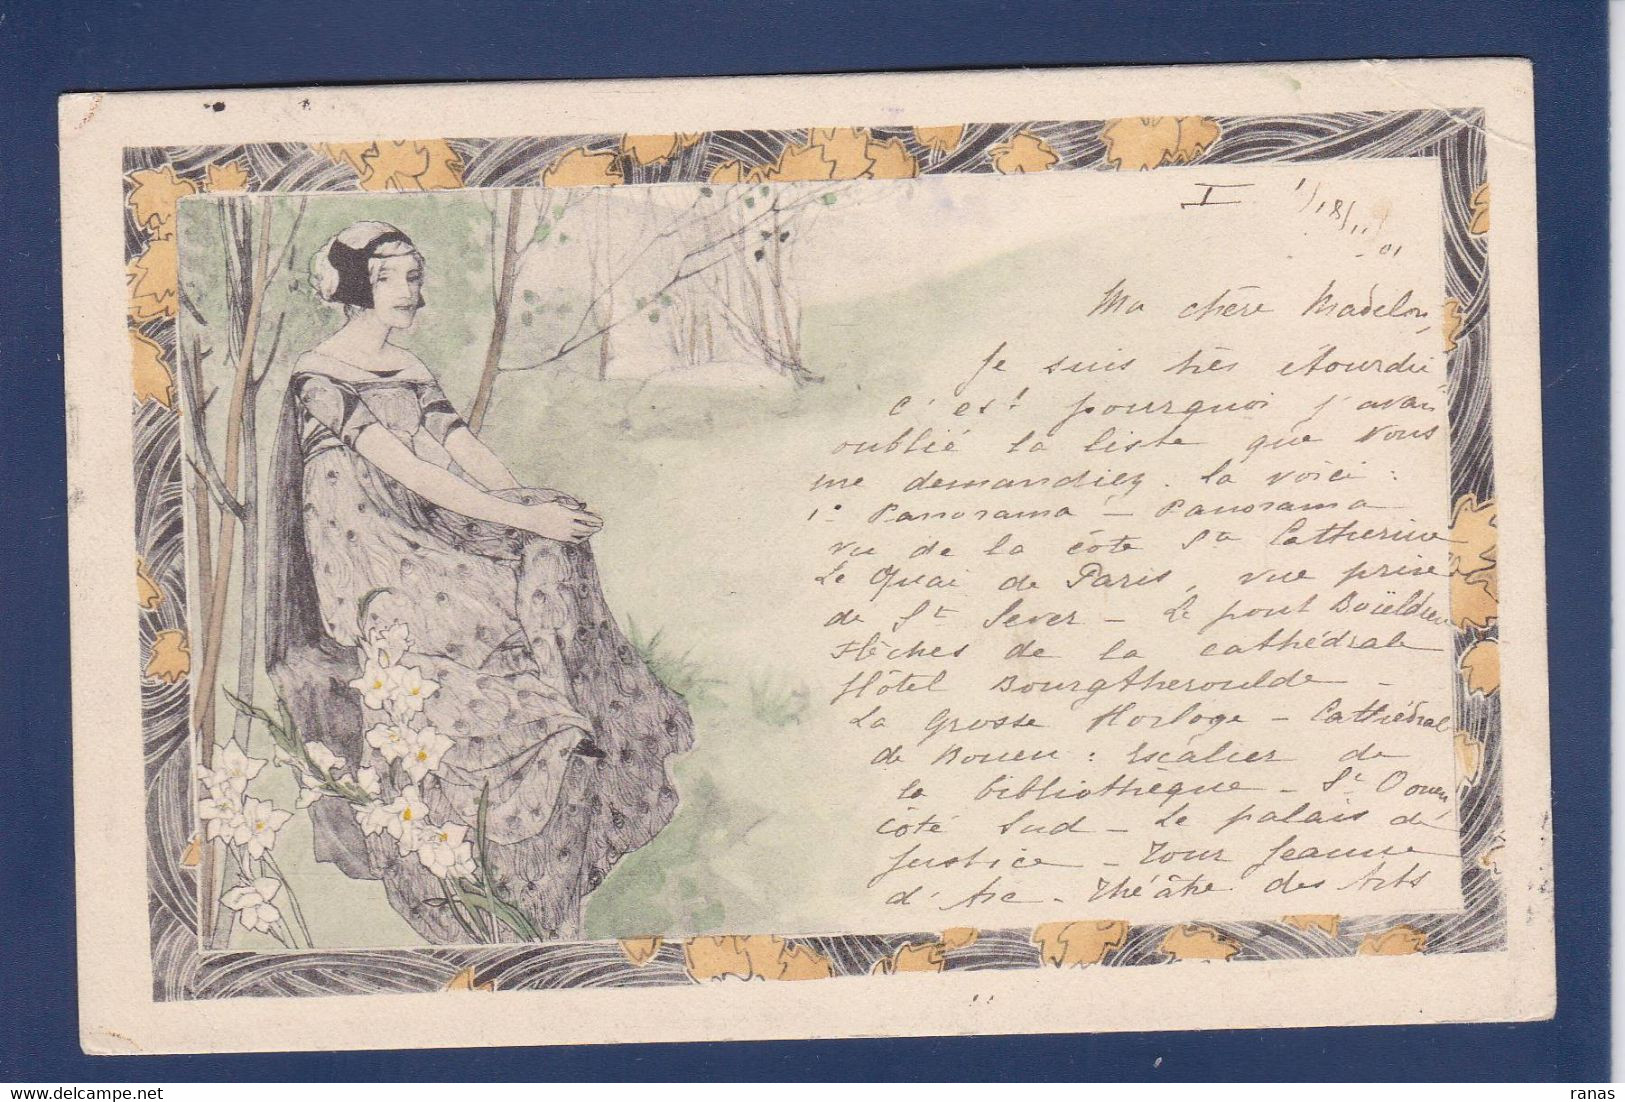 I 1/18/11/01
Ma chère Madelon,
Je suis très étourdie
c'est pourquoi j'avai
oublié la liste que vous
me demandiez. La voici :
1° Panorama - Panorama
vu de la côte Ste Catherine
Le Quai de Paris, vue prise
de St Sever - Le pont Boïeldieu
Flèches de la cathédrale
Hôtel Bourgtheroulde -
La Grosse Horloge - Cathédral
de Rouen : Escalier de
la bibliothèque - St Ouen,
côté Sud - Le palais de
justice - Tour Jeanne
d'Arc - Théâtre des Arts
ranas